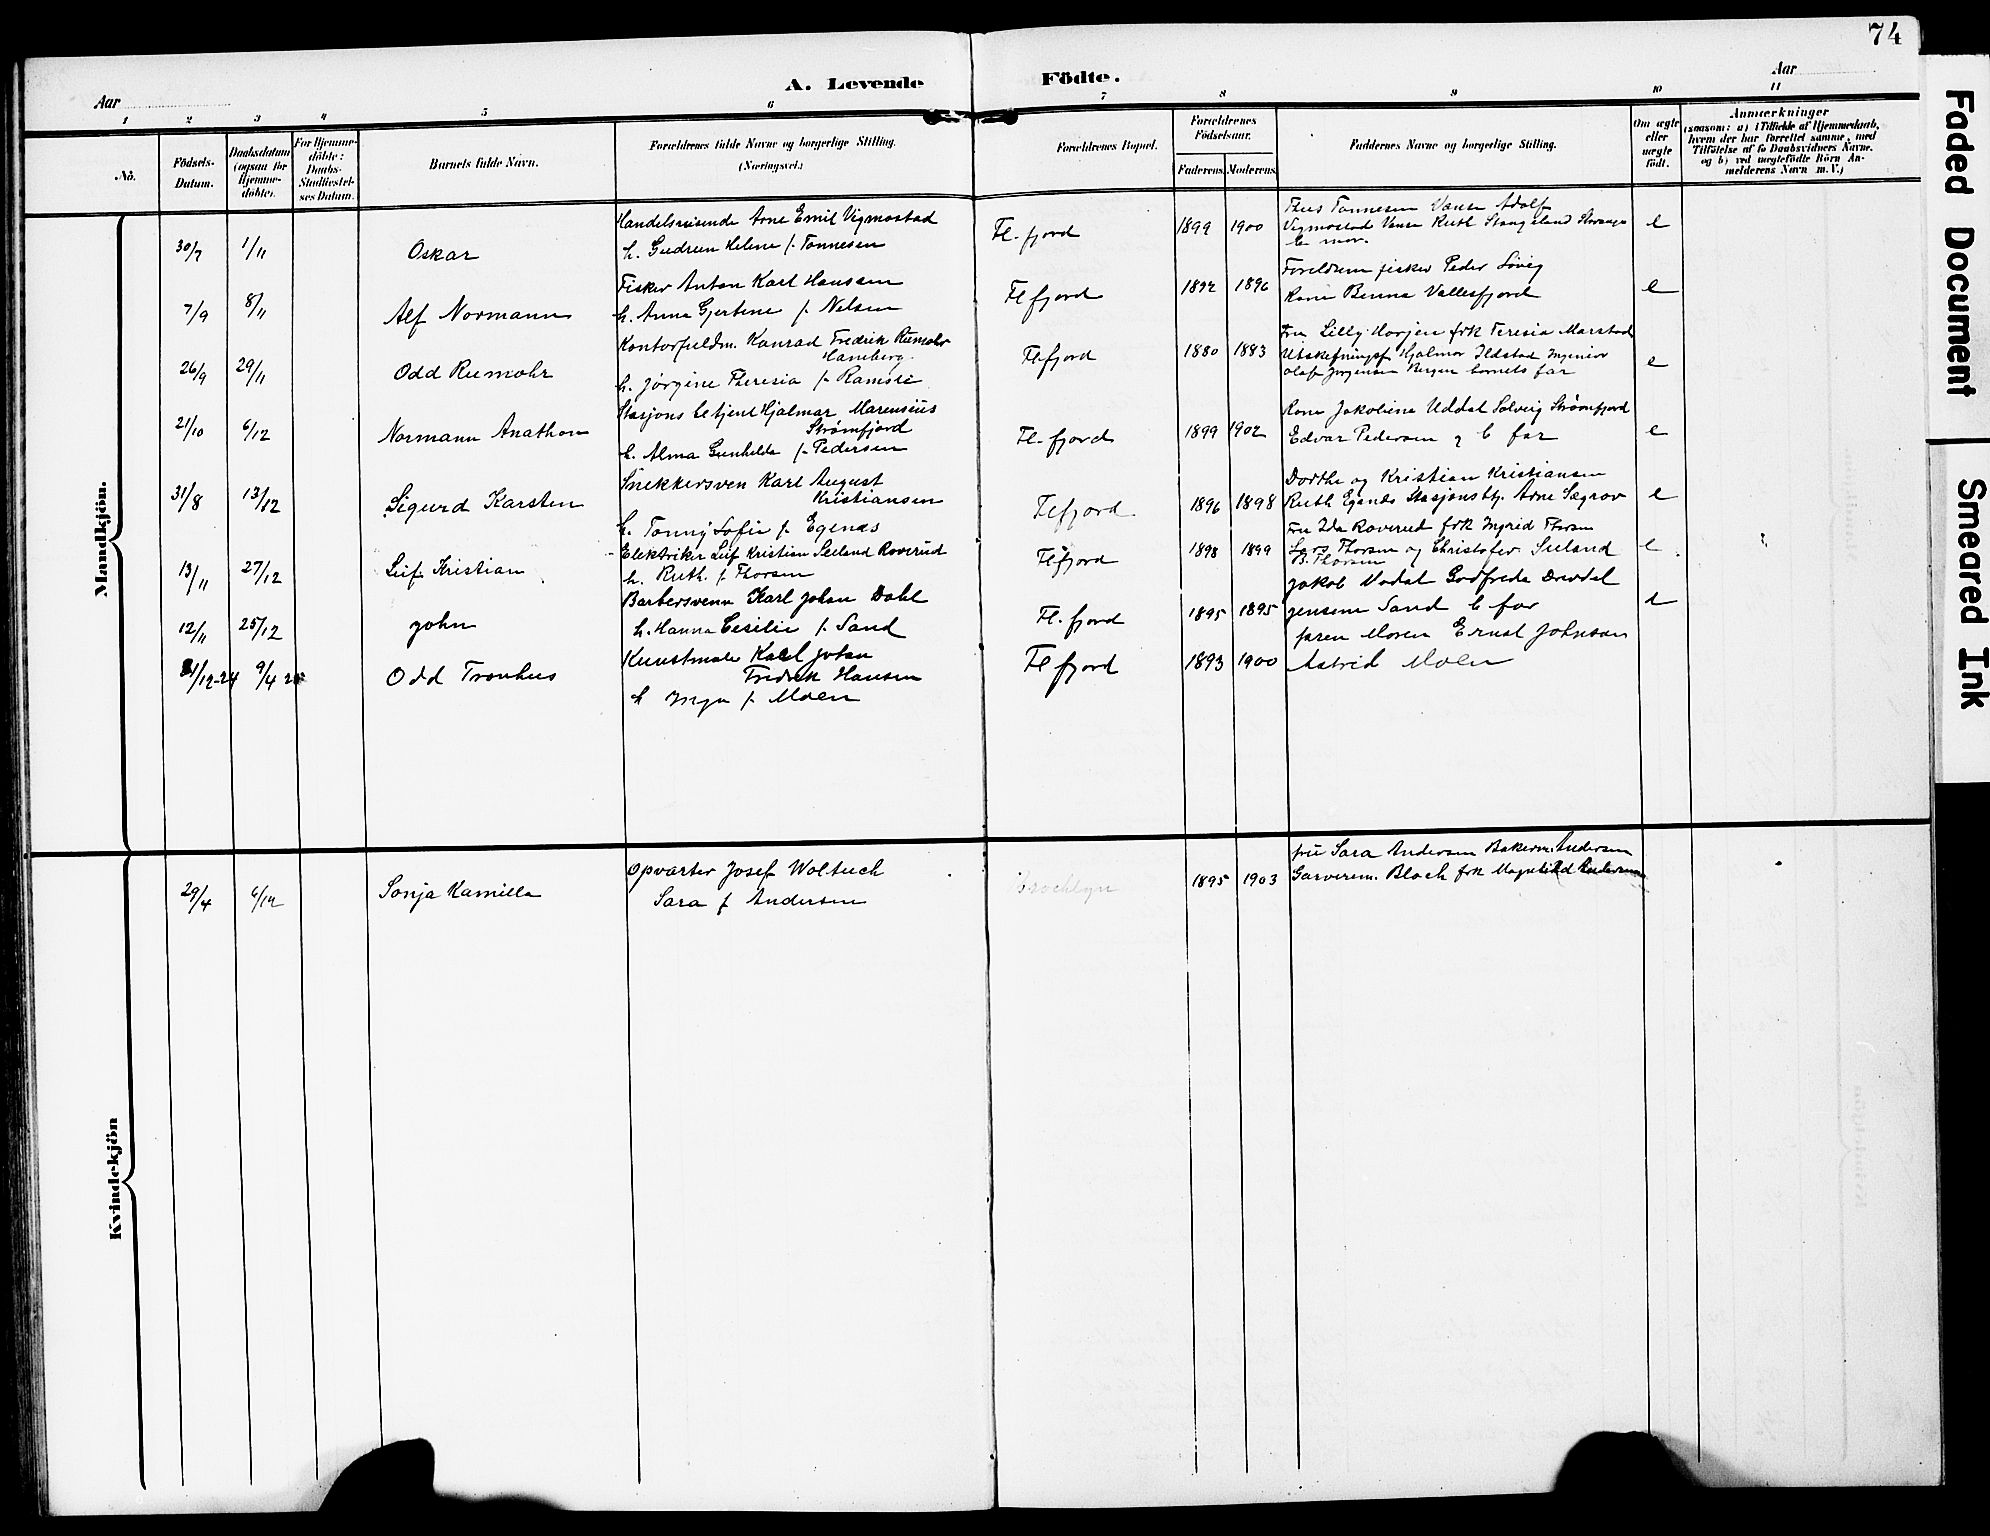 74
A. Levende Födte.
Aar
Aar
1 2 3 4 5 6 7 8 9 10 11
No.
Födsels-
Datum.
Daabsdatum
(ogsaa for
Hjemme-
döbte).
For Hjemme-
döbte:
Daabs-
Stadfæstel-
ses Datum.
Barnets fulde Navn.
Forældrenes fulde Navne og borgerlige Stilling.
(Næringsvei.)
Forældrenes Bopæl.
Forældrenes
Födselsaar.
Faderens. Moderens.
Faddernes Navne og borgerlige Stilling.
Om ægte
eller
uægte
født.
Anmærkninger
(saasom: a) i Tilfælde af Hjemmedaab,
hvem der har forrettet samme, med
Tilföielse af to Daabsvidners Navne,
og b) ved uægtefödte Börn An-
melderens Navn m. V.)
Mandkjön.
30/7 1/11 Oskar
Handelsreisende Arne Emil Vigmostad
h. Gudrun Helene f. Tonnesen
Fl. fjord 1899 1900
Tonnesen Vanse Adolf
Vigmostad Vanse Ruth Stangeland
b mor. e
7/9 8/11 Alf Normann
Fisker Anton Karl Hanssen
h. Anna Gjertine f. Nelsen
Fl fjord 1892 1896
Foreldrene fisker Peder Løvig
Kone Benna Vallesfjord e
26/9 29/11 Odd Rumohr
Kontorfuldm. Konrad Fredrik Rumohr
Hamberg.
h. Jörgine Theresia f. Ramsli
Fl. fjord 1880 1883
Fru Lilly Horjen frk Teresia Marstad
Hjalmar Ildstad Ingeniør
Olaf Jørgensen Bergen barnets far e
21/10 6/12 Normann Anathon
Stasjons betjent Hjalmar Marensius
Strømfjord
h. Alma Gunhilda f. Pedersen
Fl. fjord 1899 1902
Kone Jakobine Uddal Solveig Strømfjord
Edvar Pedersen og b far e
31/8 13/12 Sigurd Karsten
Snekkersven Karl August
Kristiansen
h. Tonny Sofie f. Egenæs
Flefjord 1896 1898
Dorthe og Kristian Kristiansen
Ruth Egenes Stasjonsbtj. Arne Sægrov e
13/11 27/12 Leif Kristian
Elektriker Leif Kristian Seeland Roverud
h. Ruth. f. Thorsen
Fl. fjord 1898 1899
Fru Ida Roverud frk Ingrid Thorsen
Lars Thorsen og Christofer Seeland
B. Thorsen e
12/11 25/12 John
Barbersvenn Karl Johan Dahl
h. Hanna Cesilie f. Sand
Fl. fjord 1895 1895
Jakob Godfreda
Jensine Sand b far e
31/12-24 9/4 25 Odd Tronhus
Kunstmaler Karl Johan
Fredrik Hansen
h Inga f. Moen
Fl fjord 1893 1900
Moren Ernst Johnson
Astrid Moen
Kvindekjön
29/4 6/12 Sonja Kamilla
Opvarter Josef Woltuch
Sara f Andersen
Brooklyn 1895 1903
fru Sara Andersen Bakerm. Andersen
Garverem. Bloch frk Magnhild Andersen
Faded Document
Smeared Ink